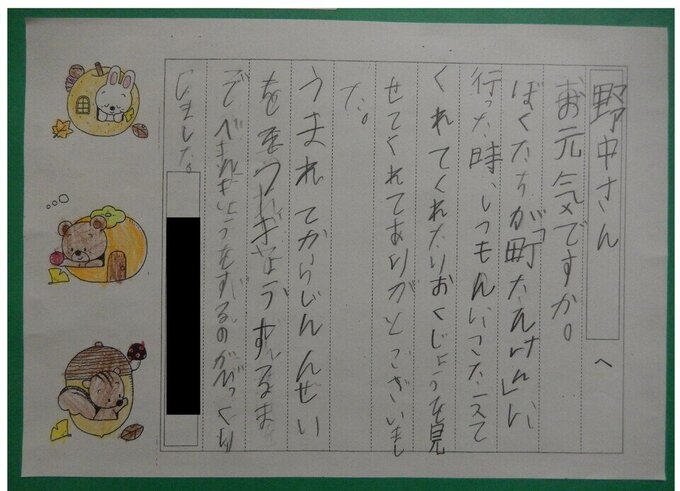 野中さん へ
お元気ですか。
ぼくたちが「町たんけん」に
行った時、しつもんにこたえて
くれてくれたりおくじょうを見
せてくれてありがとうございまし
た。
うまれてからじんせい
をそつぎょうするま
でべんきょうをするのがびっくり
しました。